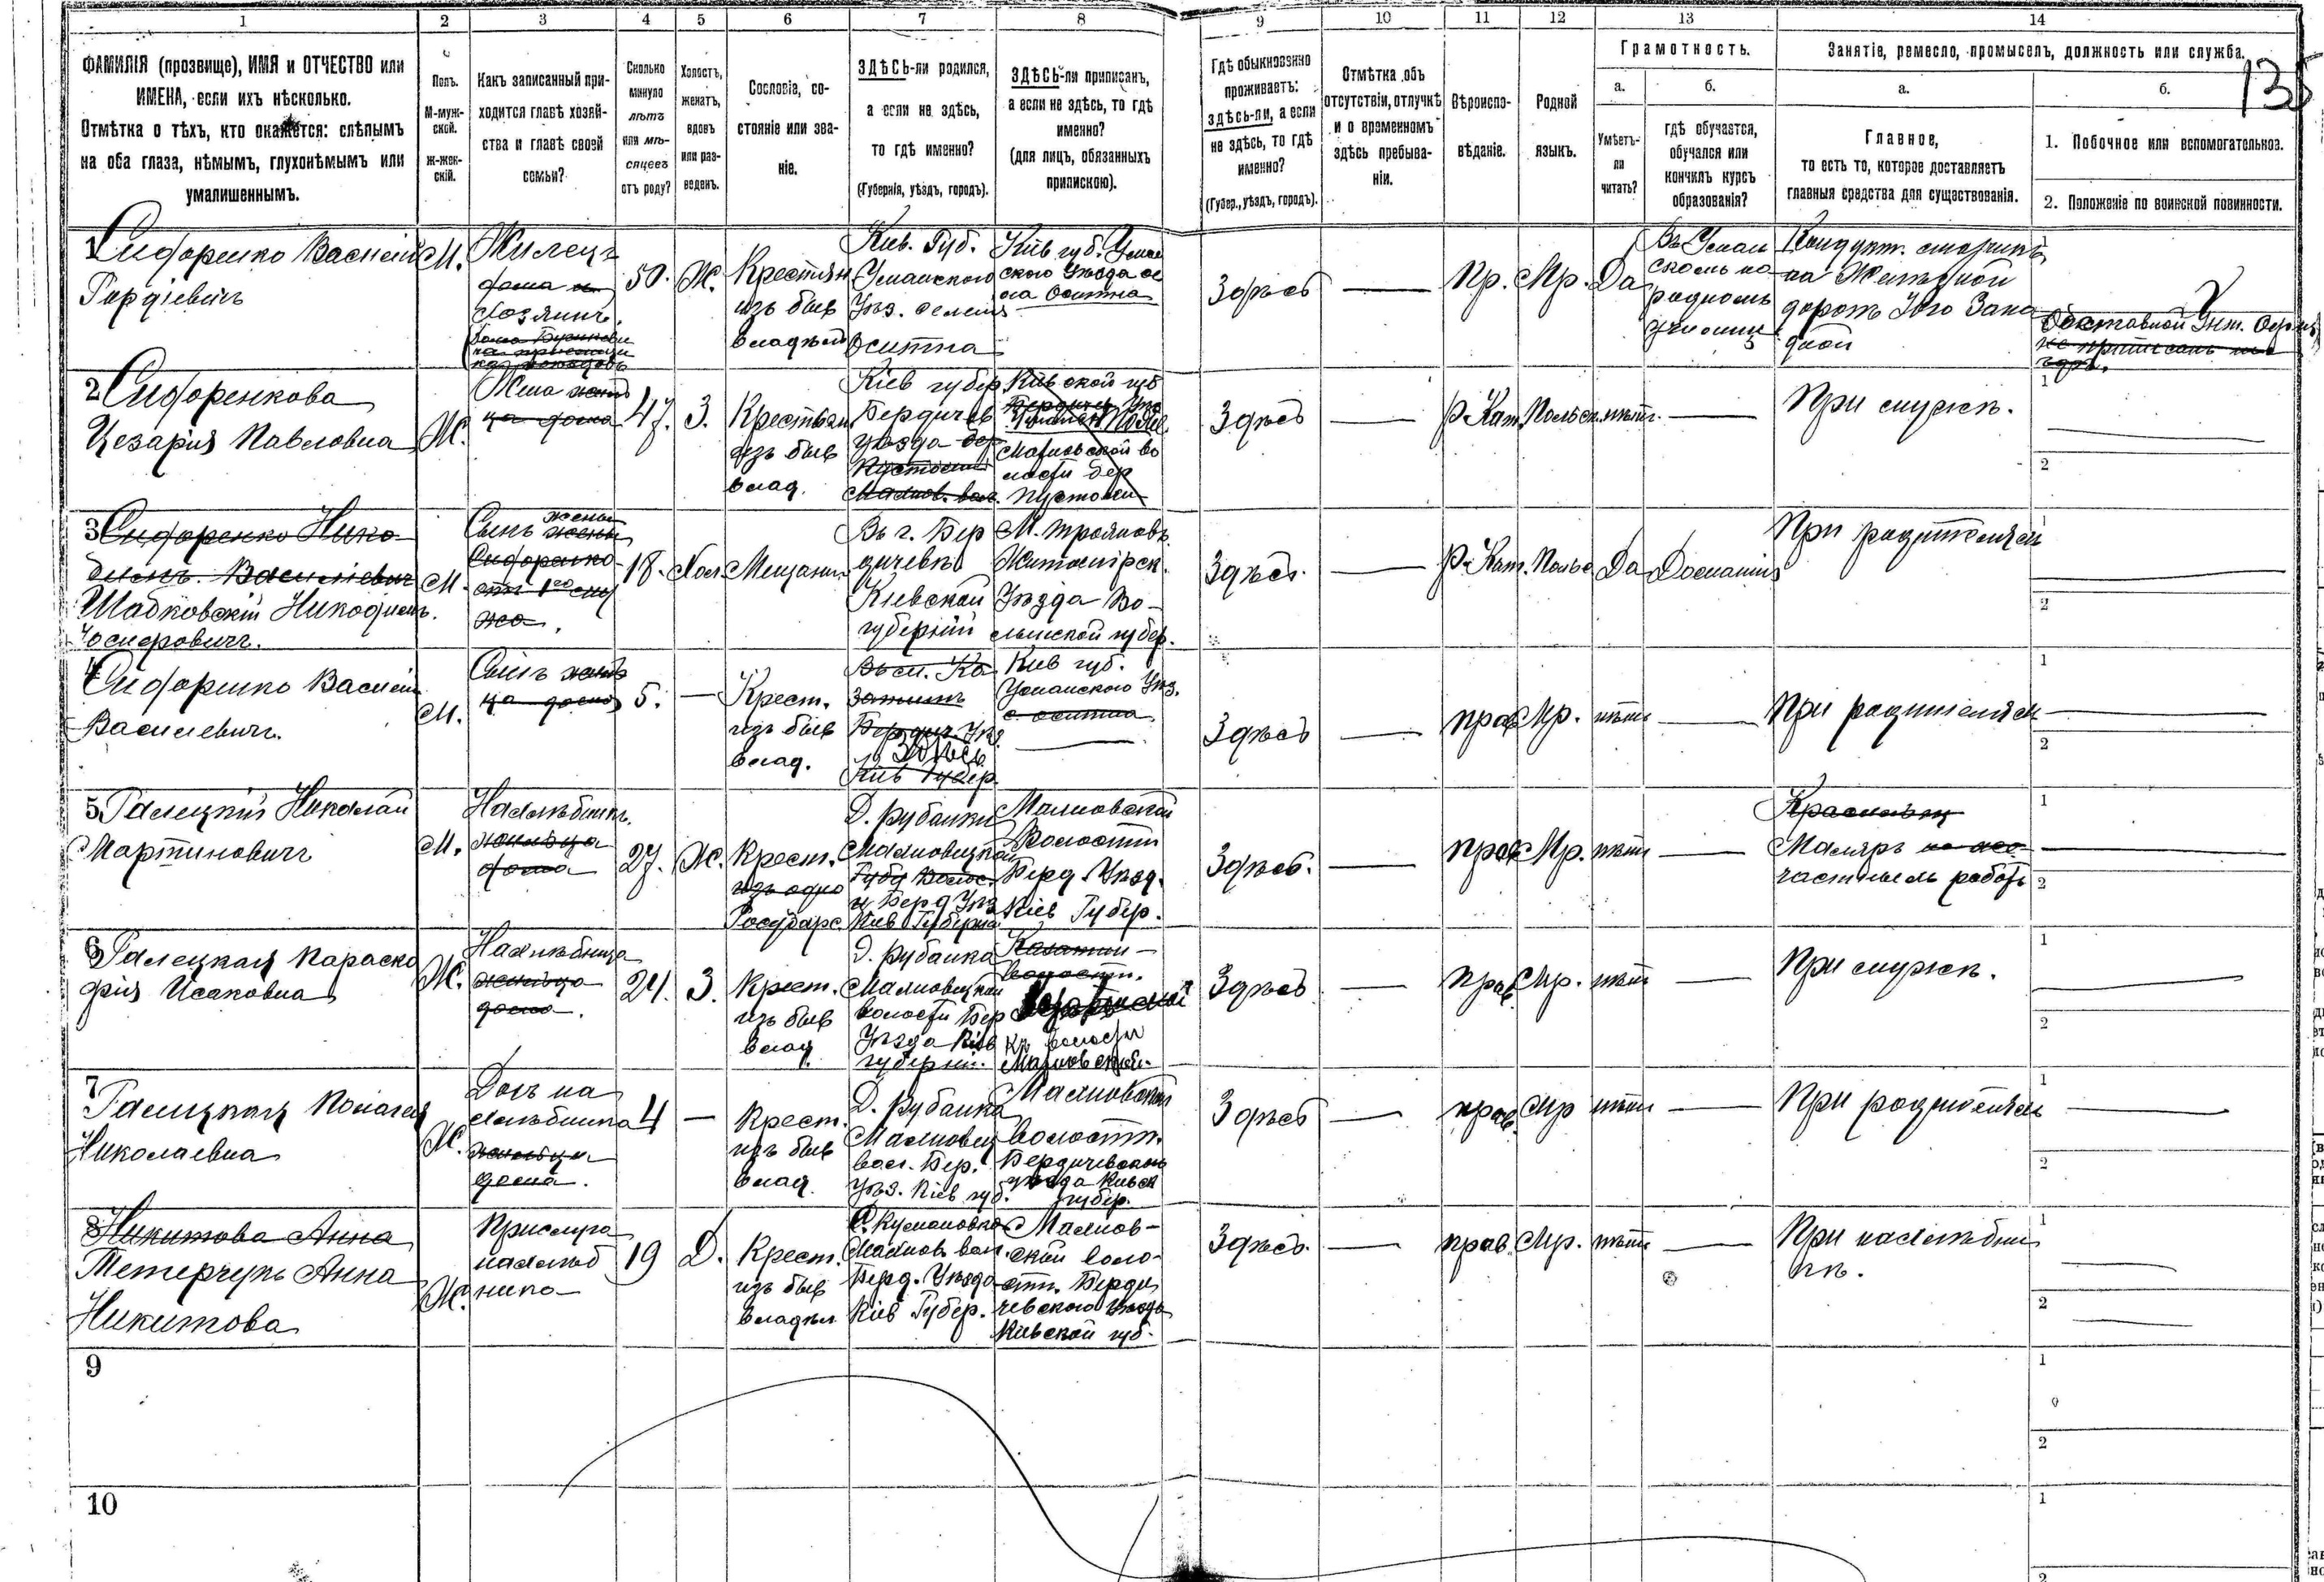 1 2 3 4 5 6 7 8 9 10 11 12 13 14
135
ФАМИЛІЯ (прозвище), ИМЯ и ОТЧЕСТВО или
ИМЕНА, если ихъ нѣсколько.
Отмѣтка о тѣхъ, кто окажется: слѣпымъ
на оба глаза, нѣмымъ, глухонѣмымъ или
умалишеннымъ.
Полъ.
М-муж-
ской.
ж-жен-
скій.
Какъ записанный при-
ходится главѣ хозяй-
ства и главѣ своей
семьи?
Сколько
минуло
лѣтъ
или мѣ-
сяцевъ
отъ роду?
Холостъ,
женатъ,
вдовъ
или раз-
веденъ.
Сословіе, со-
стояніе или зва-
ніе.
ЗДѢСЬ-ли родился,
а если не здѣсь,
то гдѣ именно?
(Губернія, уѣздъ, городъ).
ЗДѢСЬ-ли приписанъ,
а если не здѣсь, то гдѣ
именно?
(для лицъ, обязанныхъ
припискою).
Гдѣ обыкновенно
проживаетъ:
здѣсь-ли, а если
не здѣсь, то гдѣ
именно?
(Губер., уѣздъ, городъ).
Отмѣтка объ
отсутствіи, отлучкѣ
и о временномъ
здѣсь пребыва-
ніи.
Вѣроиспо-
вѣданіе.
Родной
языкъ.
Грамотность.
а.
Умѣетъ-
ли
читать?
б.
гдѣ обучается,
обучался или
кончилъ курсъ
образованія?
Занятіе, ремесло, промыселъ, должность или служба.
а.
Главное,
то есть то, которое доставляетъ
главныя средства для существованія.
б.
1. Побочное или вспомогательное.
2. Положеніе по воинской повинности.
1
Сидоренко Василій
Гордіевичъ
М.
Жилецъ
дома и
хозяинъ
50.
Ж.
Крестьян
изъ быв
владѣл
Кіев. Губ.
Уманского
Уѣз. селенія
Оситна
Кіев губ. Уман
ского Уѣзда се
ла Оситна
Здѣсь
—
Пр.
Мр.
Да
Въ Уман
скомъ на
родномъ
училищ
Кондукт. старшій
на Желѣзной
дорогѣ Юго Запа
дной
2 Сидоренкова
Цезарія Павловна
Ж.
Жена жиль
ца дома
47.
З.
Крестьян
изъ быв
влад.
Кіев губер
Бердичев
уѣзда дер
Пустохи
Махнов. вол.
Кіевской губ
Махновской во
лости дер
Пустохи
Здѣсь
—
Р. Кат.
Польск.
нѣтъ.
—
При мужѣ.
1
2
3 Сидоренко Нико
димъ Василіевич
Шадковскій Никодимъ
Іосифовичъ.
М.
Сынъ жены
жены
Сидоренко
отъ 1го му
жа.
18.
Хол.
Мещанин
Въ г. Бер
дичевѣ
Кіевской
губерніи
М. Трояновъ
Житомірск.
Уѣзда Во-
лынской губер.
Здѣсь.
—
Р. Кат.
Польс
Да
Домашнѣ
При родителяхъ
2
4
Сидоренко Василій
Васильевичъ.
М.
Сынъ жиль
ца дома
5.
—
Крест.
изъ быв
влад.
Въ м. Ка
затинѣ
Бердич. Уѣз.
Здѣсь
Кіев Губер.
Кіев губ.
Уманского Уѣз.
с. Оситна
Здѣсь
—
прав
Мр.
нѣтъ
—
При родителяхъ
1
2
5 Галецкій Николай
Мартиновичъ
М.
Нахлѣбникъ
жильца
дома
27.
Ж.
Крест.
изъ одно
Государс.
Д. Рубанки
Махновецкой
и Берд Уѣз
Кіев Губерніи
Махновской
Волости
Берд. Уѣзд.
Кіев Губер.
Здѣсь.
—
прав
Мр.
нѣтъ
—
Маляръ
частнымъ работ
1
2
6 Галецкая Параске
фія Исаковна
Ж.
Нахлѣбница
жильца
дома.
24.
З.
Крест.
изъ быв
влад
Д. Рубанка
Махновецкой
волости Бер
Уѣзда Кіев
губерніи.
Казатин-
волости.
волости
Махновской.
Здѣсь
—
прав.
Мр.
нѣтъ
—
При мужѣ.
1
2
7
Галецкая Полагея
Николаевна
Ж.
Доч на
хлѣбника
жильца
дома.
4
—
Крест.
изъ быв
влад.
Д. Рубанка
Махновец
вол. Бер.
Уѣз. Кіев губ.
Махновской
волости.
Бердичевского
уѣзда Кіевск
губер.
Здѣсь
—
прав.
Мр
нѣтъ
—
При родителяхъ
1
2
8 Никитова Анна
Тетерчукъ Анна
Никитова
Ж.
Прислуга
нахлѣб
ника
19
Д.
Крест.
изъ быв
владѣл
Махнов вол.
Берд. Уѣзда
Кіев Губер.
Махнов-
ской воло-
сти. Берди
чевского Уѣзда
Кіевской губ.
Здѣсь.
—
прав.
Мр.
нѣтъ
—
При нахлѣбни
кѣ.
1
2
9
1
2
10
1
2